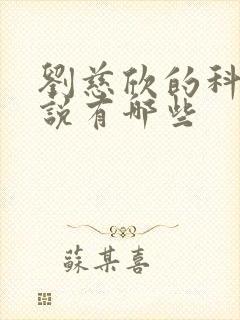 劉慈欣的科
說有哪些
蘇某喜